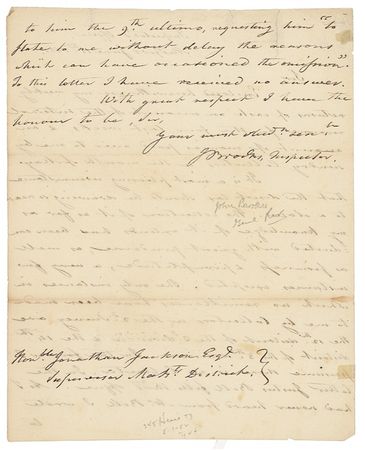 to him the 9th. ultimo, requesting him "to
state to me, without delay the reasons
which can have occasioned the omission."
To this letter I have received no answer.
With great respect I have the
honour to be, Sir,
Your most obedt. servt.
J Brooks, Inspector.
John Brooks
Honble Jonathan Jackson Esqr.
Supervisor Massts. District.